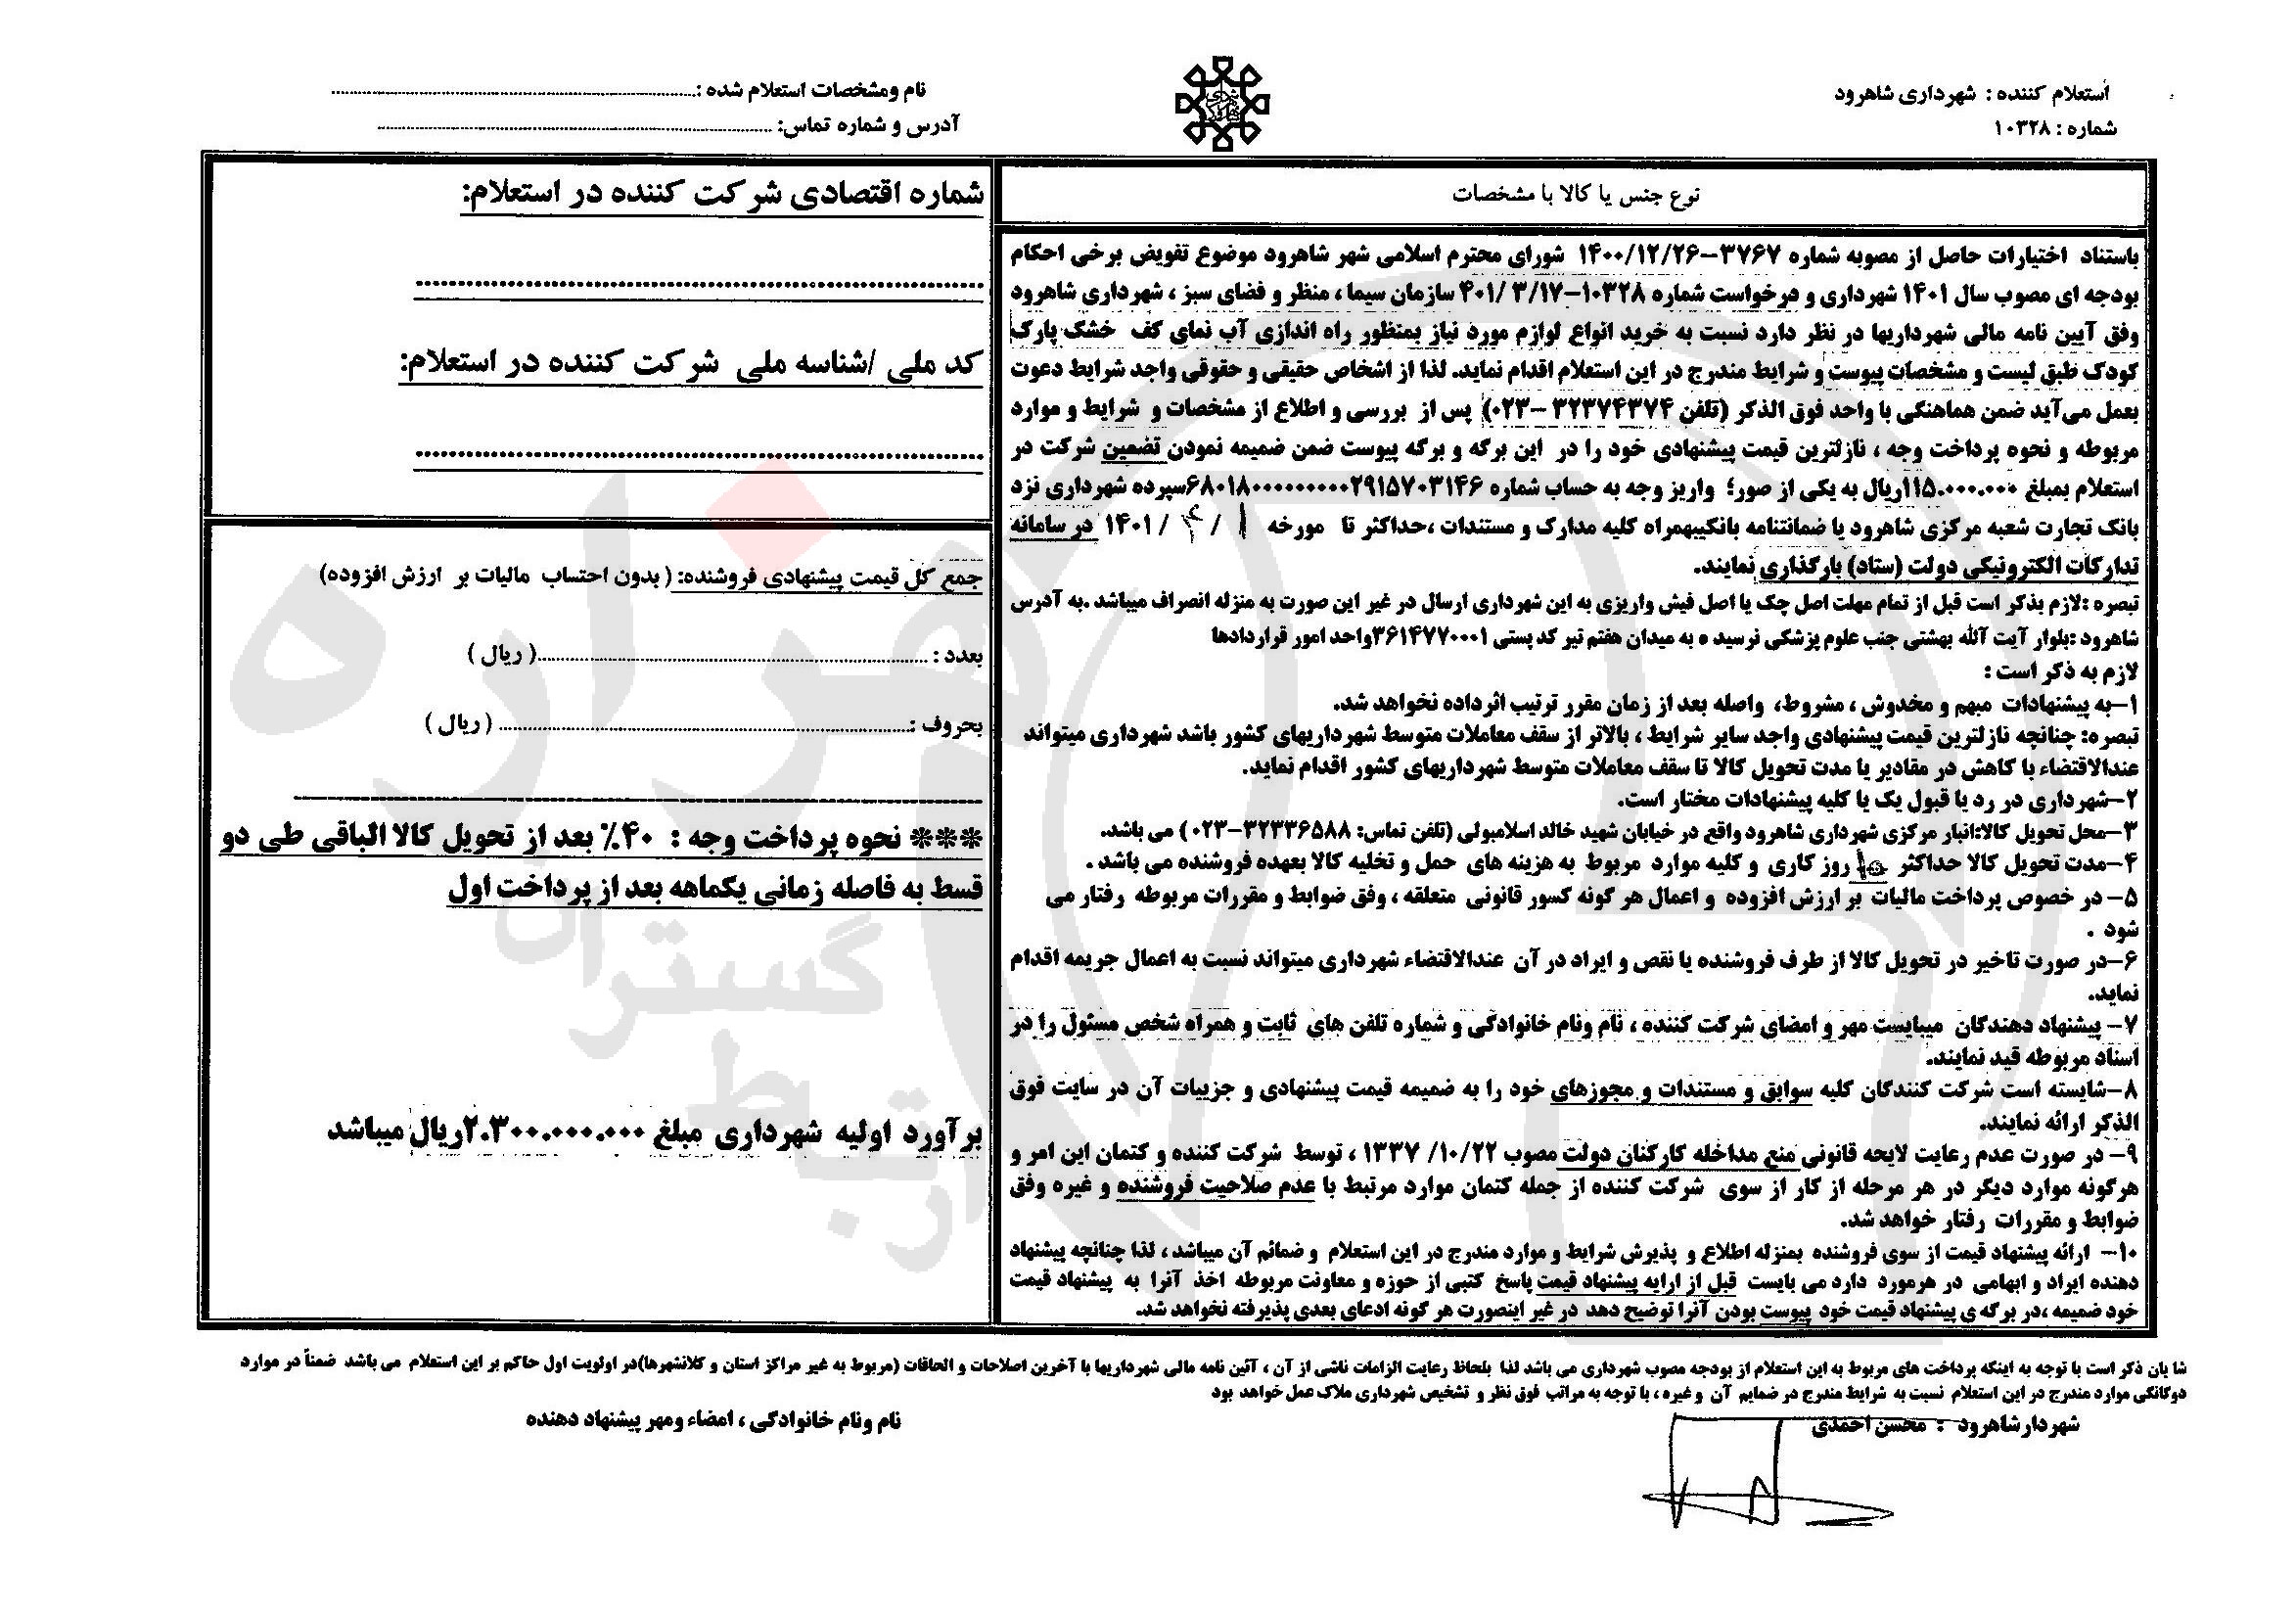 استعلام کننده : شهرداری شاهرود
شماره : ۱۰۳۲۸
نام ومشخصات استعلام شده :
آدرس و شماره تماس:
نوع جنس یا کالا با مشخصات
باستناد اختیارات حاصل از مصوبه شماره ۳۷۶۷-۱۴۰۰/۱۲/۲۶ شورای محترم اسلامی شهر شاهرود موضوع تفویض برخی احکام
بودجه ای مصوب سال ۱۴۰۱ شهرداری و درخواست شماره ۱۰۳۲۸-۴۰۱/۳/۱۷ سازمان سیما ، منظر و فضای سبز ، شهرداری شاهرود
وفق آیین نامه مالی شهرداریها در نظر دارد نسبت به خرید انواع لوازم مورد نیاز بمنظور راه اندازی آب نمای کف خشک پارک
کودک طبق لیست و مشخصات پیوست و شرایط مندرج در این استعلام اقدام نماید. لذا از اشخاص حقیقی و حقوقی واجد شرایط دعوت
بعمل می‌آید ضمن هماهنگی با واحد فوق الذکر (تلفن ۳۲۳۷۴۳۷۴ -۰۲۳) پس از بررسی و اطلاع از مشخصات و شرایط و موارد
مربوطه و نحوه پرداخت وجه ، نازلترین قیمت پیشنهادی خود را در این برگه و برگه پیوست ضمن ضمیمه نمودن تضمین شرکت در
استعلام بمبلغ ۱۱۵.۰۰۰.۰۰۰ریال به یکی از صور؛ واریز وجه به حساب شماره ۶۸۰۱۸۰۰۰۰۰۰۰۰۰۰۲۹۱۵۷۰۳۱۴۶سپرده شهرداری نزد
بانک تجارت شعبه مرکزی شاهرود یا ضمانتنامه بانکیبهمراه کلیه مدارک و مستندات ،حداکثر تا مورخه ۱ / ۴ / ۱۴۰۱ در سامانه
تدارکات الکترونیکی دولت (ستاد) بارگذاری نمایند.
تبصره :لازم بذکر است قبل از تمام مهلت اصل چک یا اصل فیش واریزی به این شهرداری ارسال در غیر این صورت به منزله انصراف میباشد .به آدرس
شاهرود :بلوار آیت آلله بهشتی جنب علوم پزشکی نرسید ه به میدان هفتم تیر کد پستی ۳۶۱۴۷۷۰۰۰۱واحد امور قراردادها
لازم به ذکر است :
۱-به پیشنهادات مبهم و مخدوش ، مشروط، واصله بعد از زمان مقرر ترتیب اثرداده نخواهد شد.
تبصره: چنانچه نازلترین قیمت پیشنهادی واجد سایر شرایط ، بالاتر از سقف معاملات متوسط شهرداریهای کشور باشد شهرداری میتواند
عندالاقتضاء با کاهش در مقادیر یا مدت تحویل کالا تا سقف معاملات متوسط شهرداریهای کشور اقدام نماید.
۲-شهرداری در رد یا قبول یک یا کلیه پیشنهادات مختار است.
۳-محل تحویل کالا:انبار مرکزی شهرداری شاهرود واقع در خیابان شهید خالد اسلامبولی (تلفن تماس: ۳۲۳۳۶۵۸۸-۰۲۳) می باشد.
۴-مدت تحویل کالا حداکثر روز کاری و کلیه موارد مربوط به هزینه های حمل و تخلیه کالا بعهده فروشنده می باشد .
۵- در خصوص پرداخت مالیات بر ارزش افزوده و اعمال هر گونه کسور قانونی متعلقه ، وفق ضوابط و مقررات مربوطه رفتار می
شود .
۶-در صورت تاخیر در تحویل کالا از طرف فروشنده یا نقص و ایراد در آن عندالاقتضاء شهرداری میتواند نسبت به اعمال جریمه اقدام
نماید.
۷- پیشنهاد دهندگان میبایست مهر و امضای شرکت کننده ، نام ونام خانوادگی و شماره تلفن های ثابت و همراه شخص مسئول را در
اسناد مربوطه قید نمایند.
۸-شایسته است شرکت کنندگان کلیه سوابق و مستندات و مجوزهای خود را به ضمیمه قیمت پیشنهادی و جزییات آن در سایت فوق
الذکر ارائه نمایند.
۹- در صورت عدم رعایت لایحه قانونی منع مداخله کارکنان دولت مصوب ۱۰/۲۲/ ۱۳۳۷ ، توسط شرکت کننده و کتمان این امر و
هرگونه موارد دیگر در هر مرحله از کار از سوی شرکت کننده از جمله کتمان موارد مرتبط با عدم صلاحیت فروشنده و غیره وفق
ضوابط و مقررات رفتار خواهد شد.
۱۰- ارائه پیشنهاد قیمت از سوی فروشنده بمنزله اطلاع و پذیرش شرایط و موارد مندرج در این استعلام و ضمائم آن میباشد ، لذا چنانچه پیشنهاد
دهنده ایراد و ابهامی در هرمورد دارد می بایست قبل از ارایه پیشنهاد قیمت پاسخ کتبی از حوزه و معاونت مربوطه اخذ آنرا به پیشنهاد قیمت
خود ضمیمه ،در برگه ی پیشنهاد قیمت خود پیوست بودن آنرا توضیح دهد در غیر اینصورت هر گونه ادعای بعدی پذیرفته نخواهد شد.
شماره اقتصادی شرکت کننده در استعلام:
کد ملی /شناسه ملی شرکت کننده در استعلام:
جمع کل قیمت پیشنهادی فروشنده: ( بدون احتساب مالیات بر ارزش افزوده)
بعدد : ( ریال )
بحروف : ( ریال )
*** نحوه پرداخت وجه : ۴۰٪ بعد از تحویل کالا الباقی طی دو
قسط به فاصله زمانی یکماهه بعد از پرداخت اول
برآورد اولیه شهرداری مبلغ ۲.۳۰۰.۰۰۰.۰۰۰ریال میباشد
هزاره
ارتباط
گستران
شا یان ذکر است با توجه به اینکه پرداخت های مربوط به این استعلام از بودجه مصوب شهرداری می باشد لذا بلحاظ رعایت الزامات ناشی از آن ، آئین نامه مالی شهرداریها با آخرین اصلاحات و الحاقات (مربوط به غیر مراکز استان و کلانشهرها)در اولویت اول حاکم بر این استعلام می باشد ضمناً در موارد
دوگانگی موارد مندرج در این استعلام نسبت به شرایط مندرج در ضمایم آن و غیره ، با توجه به مراتب فوق نظر و تشخیص شهرداری ملاک عمل خواهد بود
شهردارشاهرود : محسن احمدی
نام ونام خانوادگی ، امضاء ومهر پیشنهاد دهنده